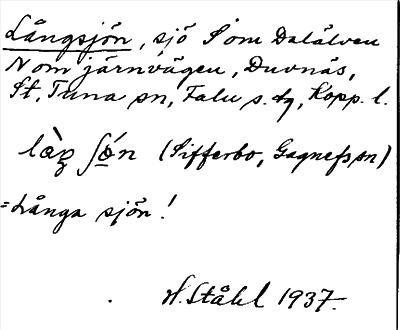 Långsjön, sjö S om Dalälven
N om järnvägen, Duvnäs,
St. Tuna sn, Falu s. dg, Kopp. l.
(Sifferbo, Gagnefs sn)
= Långa sjön!
H. Ståhl 1937.